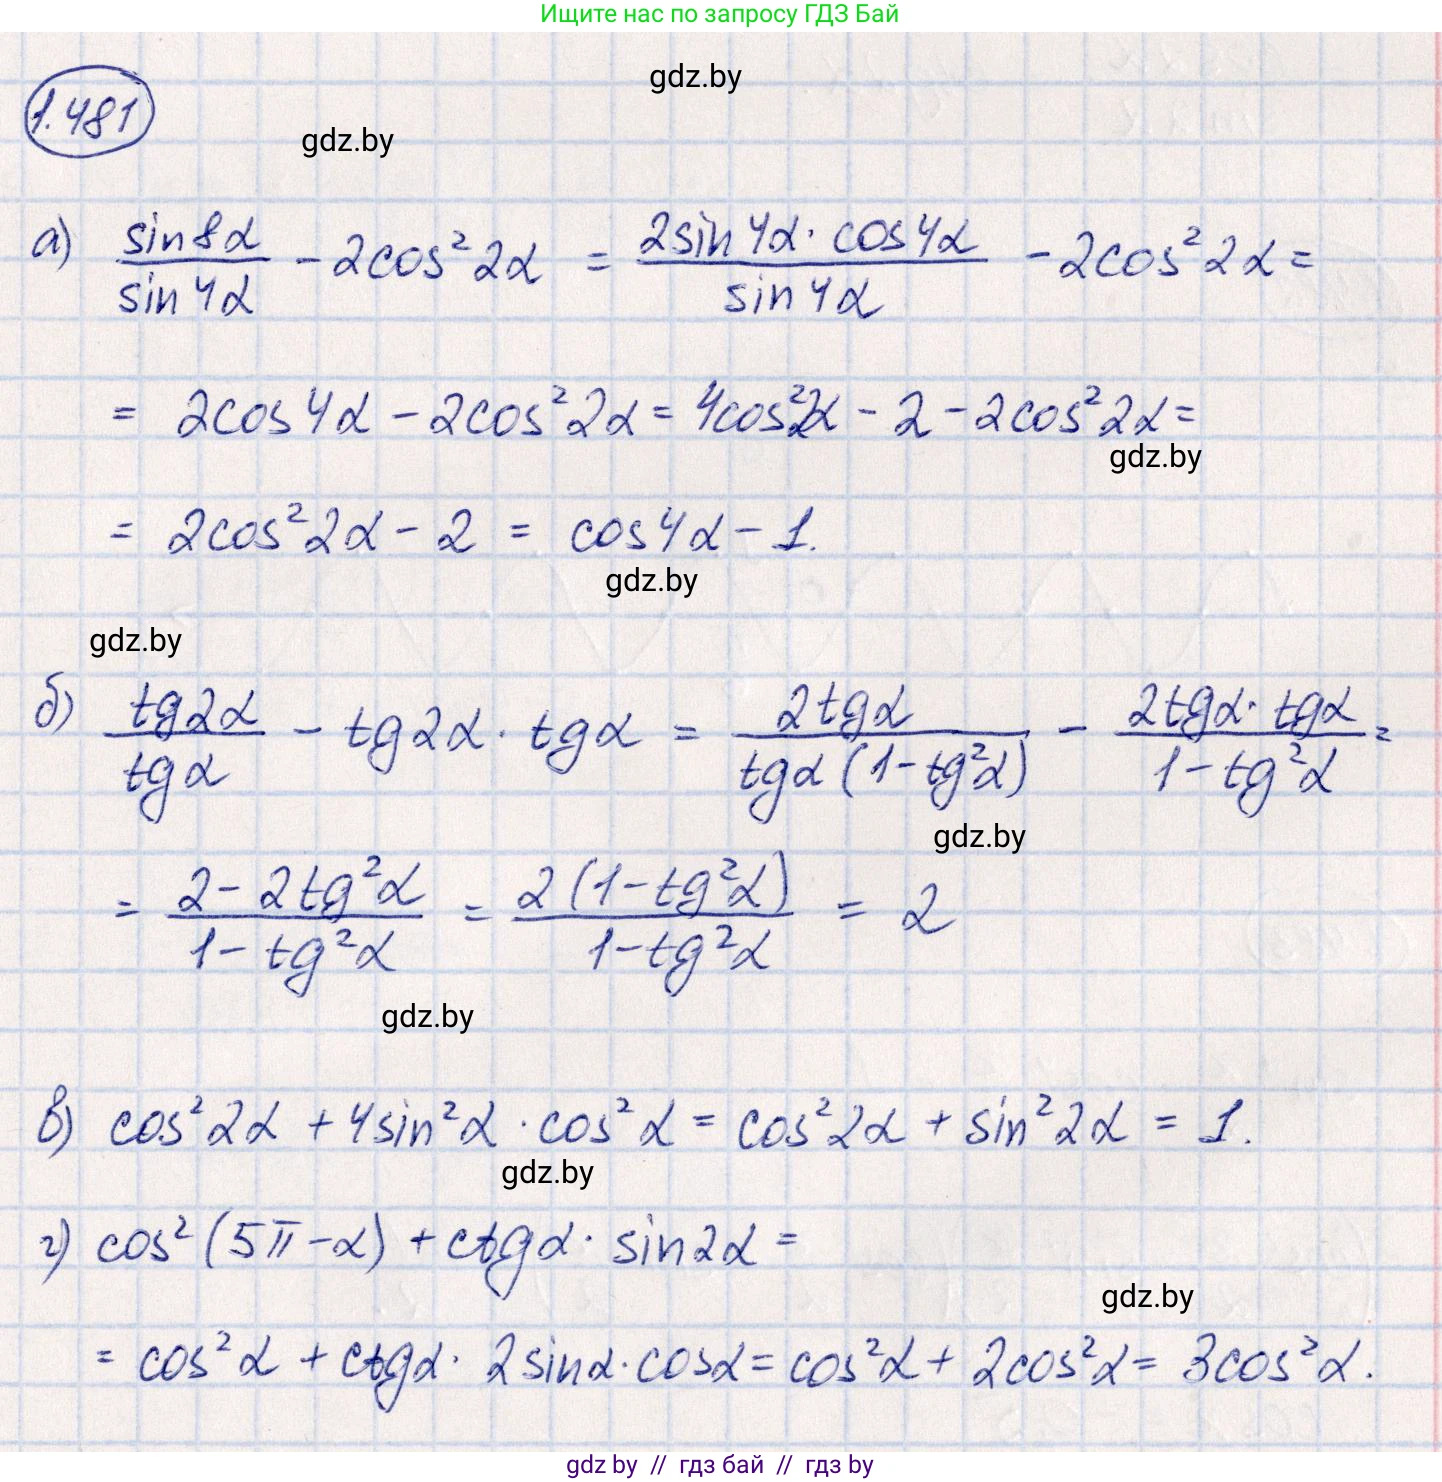 Ищите нас по запросу ГДЗ Бай
gdz.by
1.481
gdz.by
а) sin8α/sin4α - 2cos²2α = 2sin4α·cos4α/sin4α - 2cos²2α =
= 2cos4α - 2cos²2α = 4cos²2α - 2 - 2cos²2α =
gdz.by
= 2cos²2α - 2 = cos4α - 1.
gdz.by
gdz.by
б) tg2α/tgα - tg2α·tgα = 2tgα/tgα(1-tg²α) - 2tgα·tgα/1-tg²α =
gdz.by
= 2-2tg²α/1-tg²α = 2(1-tg²α)/1-tg²α = 2
gdz.by
в) cos²2α + 4sin²α·cos²α = cos²2α + sin²2α = 1.
gdz.by
г) cos²(5π-α) + ctgα·sin2α =
gdz.by
= cos²α + ctgα·2sinα·cosα = cos²α + 2cos²α = 3cos²α.
gdz.by // гдз бай // гдз by